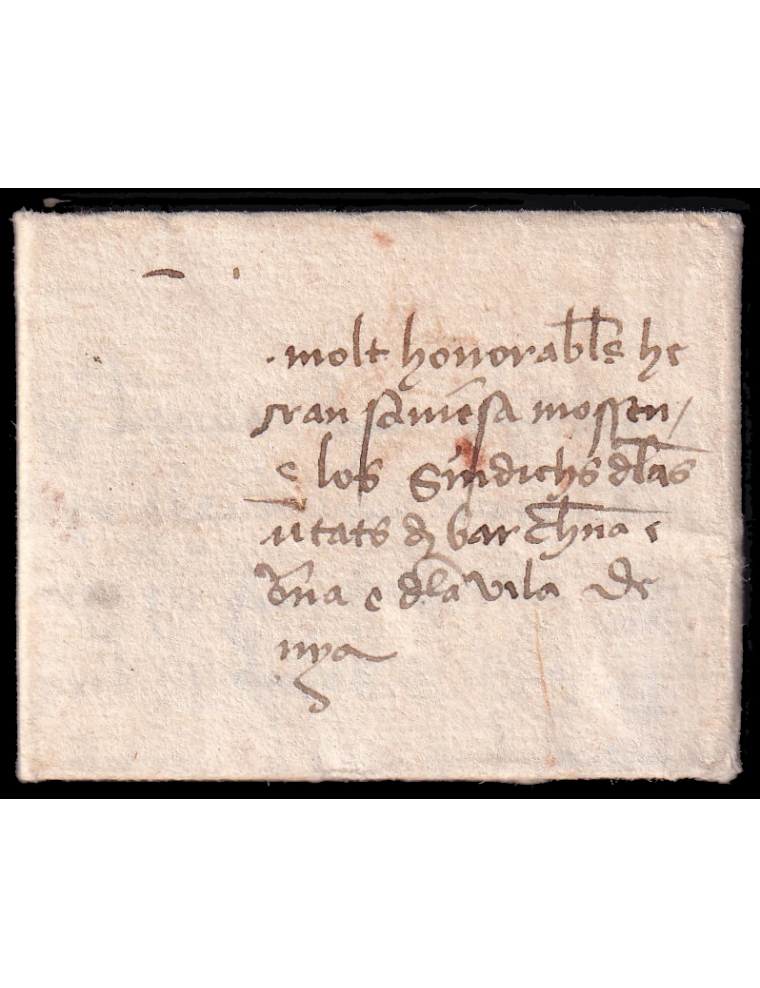 molt honorables he
gran saviesa mossen
e los sindichs dlas
utats d barchna e
e dla vila de
nya